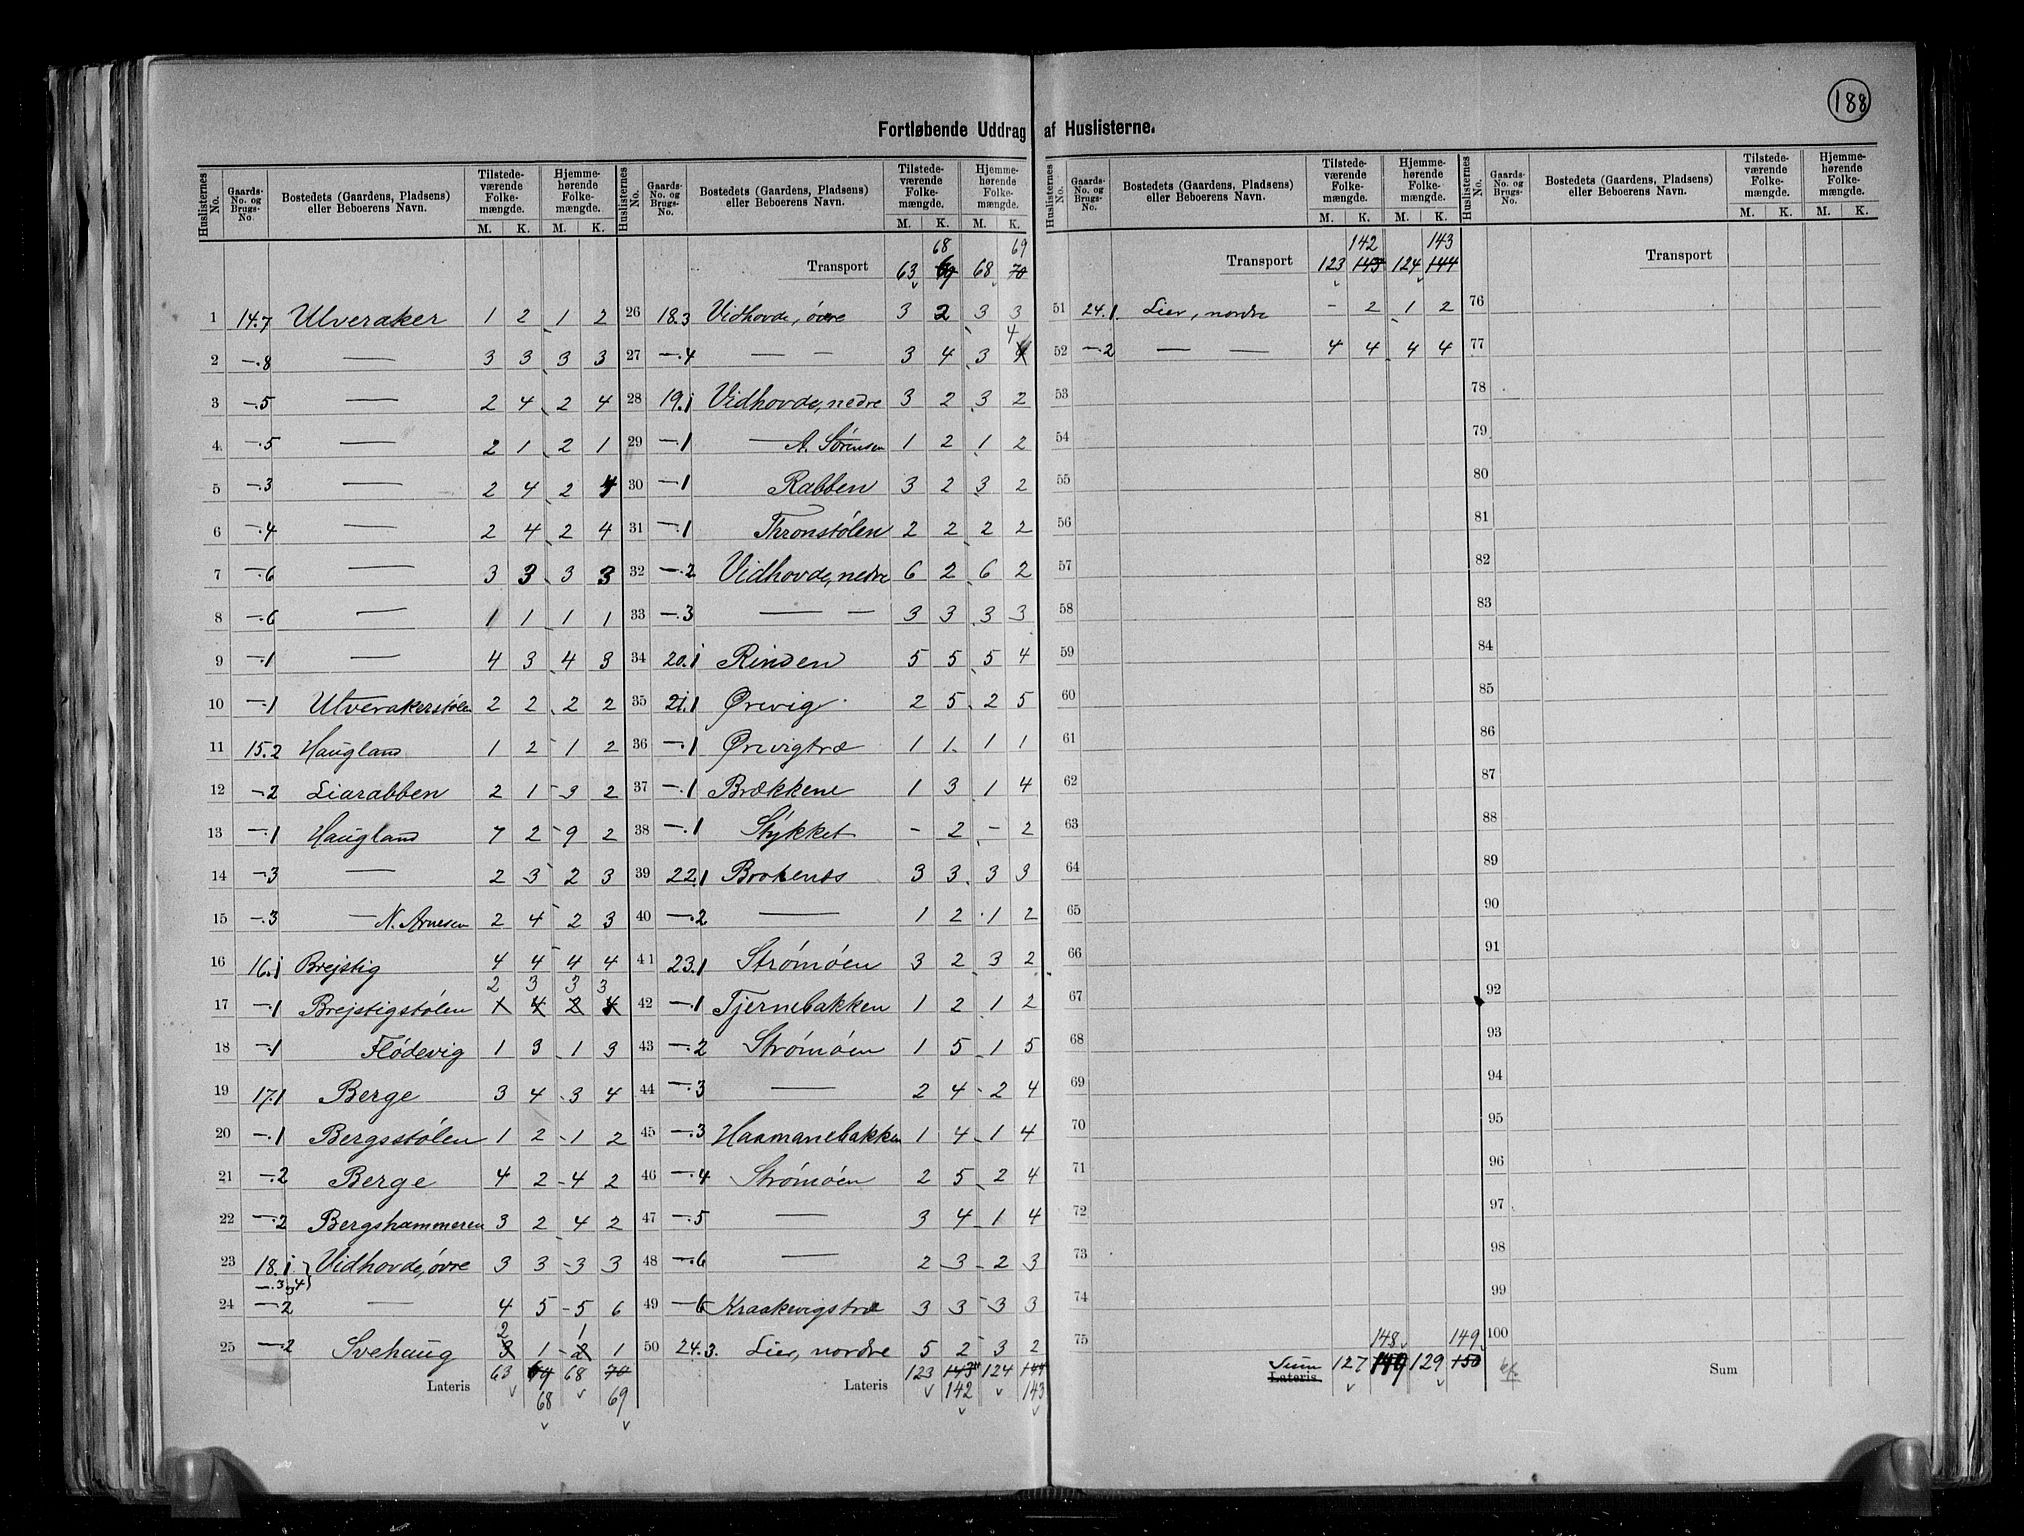 188
Fortløbende Uddrag af Huslisterne.
Huslisternes No. Gaards-No. og Brugs-No. Bostedets (Gaardens, Pladsens) eller Beboerens Navn. Tilstede-værende Folke-mængde. M. K. Hjemme-hørende Folke-mængde. M. K.
1 14.7 Ulveraker 1 2 1 2
2 -.8 — 3 3 3 3
3 -.5 — 2 4 2 4
4 -.5 — 2 1 2 1
5 -.3 — 2 4 2 4
6 -.4 — 2 4 2 4
7 -.6 — 3 3 3 3
8 -.6 — 1 1 1 1
9 -.1 — 4 3 4 3
10 -.1 Ulverakerstølen 2 2 2 2
11 15.2 Haugland 1 2 1 2
12 -.2 Liarabben 2 1 3 2
13 -.1 Haugland 7 2 9 2
14 -.3 — 2 3 2 3
15 -.3 — N. Arnesen 2 4 2 3
16 16.1 Brejstig 4 4 4 4
2 3 3 3
17 -.1 Brejstigstølen 1 4 2 4
18 -.1 Flødevig 1 3 1 3
19 17.1 Berge 3 4 3 4
20 -.1 Bergsstølen 1 2 1 2
21 -.2 Berge 4 2 4 2
22 -.2 Bergshammeren 3 2 4 2
23 18.1 Vidhovde, øvre 3 3 3 3
-.3 og 4
24 -.2 — 4 5 5 6
2 1
25 -.2 Svehaug 3 1 2 1
Lateris 63 69 68 70
68 69
Huslisternes No. Gaards-No. og Brugs-No. Bostedets (Gaardens, Pladsens) eller Beboerens Navn. Tilstede-værende Folke-mængde. M. K. Hjemme-hørende Folke-mængde. M. K.
68 69
Transport 63 69 68 70
26 18.3 Vidhovde, øvre 3 2 3 3
4
27 -.4 — — 3 4 3 4
28 19.1 Vidhovde, nedre 3 2 3 2
29 -.1 — A. Sørensen 1 2 1 2
30 -.1 Rabben 3 2 3 2
31 -.1 Thronstølen 2 2 2 2
32 -.2 Vidhovde, nedre 6 2 6 2
33 -.3 — — 3 3 3 3
34 20.1 Rinden 5 5 5 4
35 21.1 Ørevig 2 5 2 5
36 -.1 Ørevigtræ 1 1 1 1
37 -.1 Brækkene 1 3 1 4
38 -.1 Stykket - 2 - 2
39 22.1 3 3 3 3
40 -.2 — 1 2 1 2
41 23.1 Strømøen 3 2 3 2
42 -.1 Tjernebakken 1 2 1 2
43 -.2 Strømøen 1 5 1 5
44 -.3 — 2 4 2 4
45 -.3 Haamanebakken 1 4 1 4
46 -.4 Strømøen 2 5 2 4
47 -.5 — 3 4 1 4
48 -.6 — 2 3 2 3
49 -.6 Kraakevigstræ 3 3 3 3
50 24.3. Lier, nordre 5 2 3 2
Lateris 123 143 124 144
142 143
Huslisternes No. Gaards-No. og Brugs-No. Bostedets (Gaardens, Pladsens) eller Beboerens Navn. Tilstede-værende Folke-mængde. M. K. Hjemme-hørende Folke-mængde. M. K.
142 143
Transport 123 143 124 144
51 24.1. Lier, nordre - 2 1 2
52 -.2 — — 4 4 4 4
53
54
55
56
57
58
59
60
61
62
63
64
65
66
67
68
69
70
71
72
73
74
75
148 149
Sum 127 149 129 150
Lateris
Huslisternes No. Gaards-No. og Brugs-No. Bostedets (Gaardens, Pladsens) eller Beboerens Navn. Tilstede-værende Folke-mængde. M. K. Hjemme-hørende Folke-mængde. M. K.
Transport
76
77
78
79
80
81
82
83
84
85
86
87
88
89
90
91
92
93
94
95
96
97
98
99
100
Sum